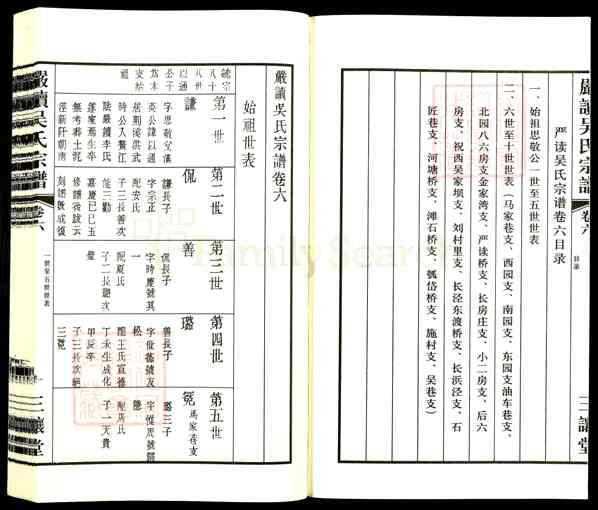 嚴讀吳氏宗譜
卷六
目录
三讓堂
严读吴氏宗谱卷六目录
一、始祖思敬公一世至五世世表
二、六世至十世世表（马家巷支、西园支、南园支、东园支油车巷支、
北园八六房支金家湾支、严读桥支、长房庄支、小二房支、后六
房支、祝西吴家坝支、刘村里支、长泾东渡桥支、长浜泾支、石
匠巷支、河塘桥支、滩石桥支、瓠岱桥支、施村支、吴巷支）
嚴讀吳氏宗譜卷六
始祖世表
第一世
第二世
第三世
第四世
第五世
謙
字思敬父漢
英公諱以通
居荊溪洪武
時公入贅江
陰嚴讀李氏
遂家焉生卒
無考葬土泥
涇新阡朝南
侃
謙長子
字宗正
配安氏
子三長善次
能三勤
善
侃長子
字時慶號其
一
配夏氏
子二長璐次
璐
善長子
松
配王氏宣德
丁未生成化
甲辰卒
子三長次
三冕
冕
馬家巷支
璐三子
隱
配馬氏
子一天貴
嚴讀吳氏宗譜
卷六
一世至五世世表
三讓堂
FamilySearch